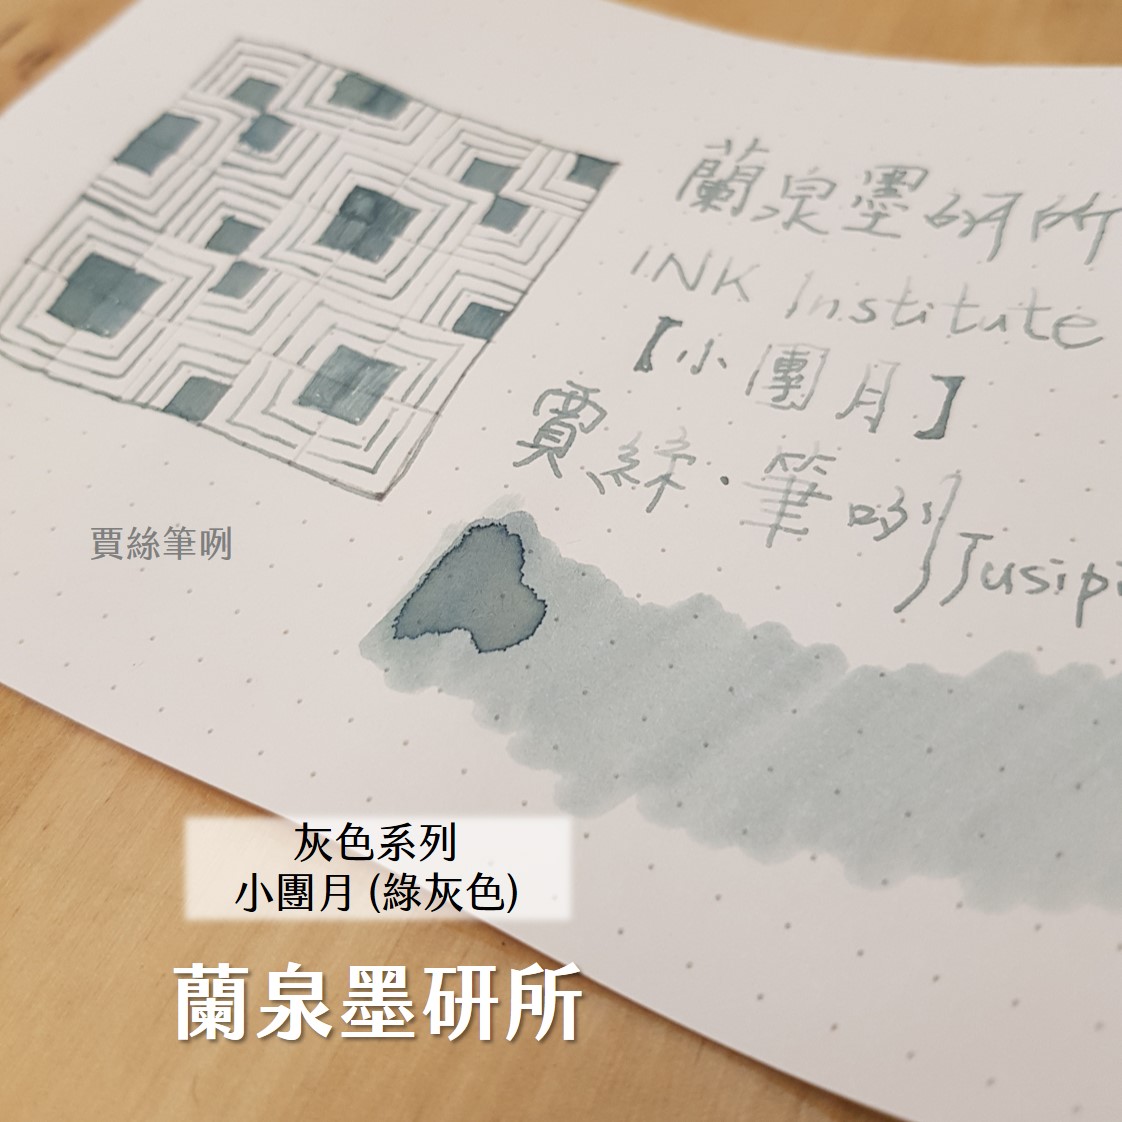 蘭泉墨研所
INK Institute
【小團月】
賈絲·筆咧/Jusipi
賈絲筆咧
灰色系列
小團月 (綠灰色)
蘭泉墨研所